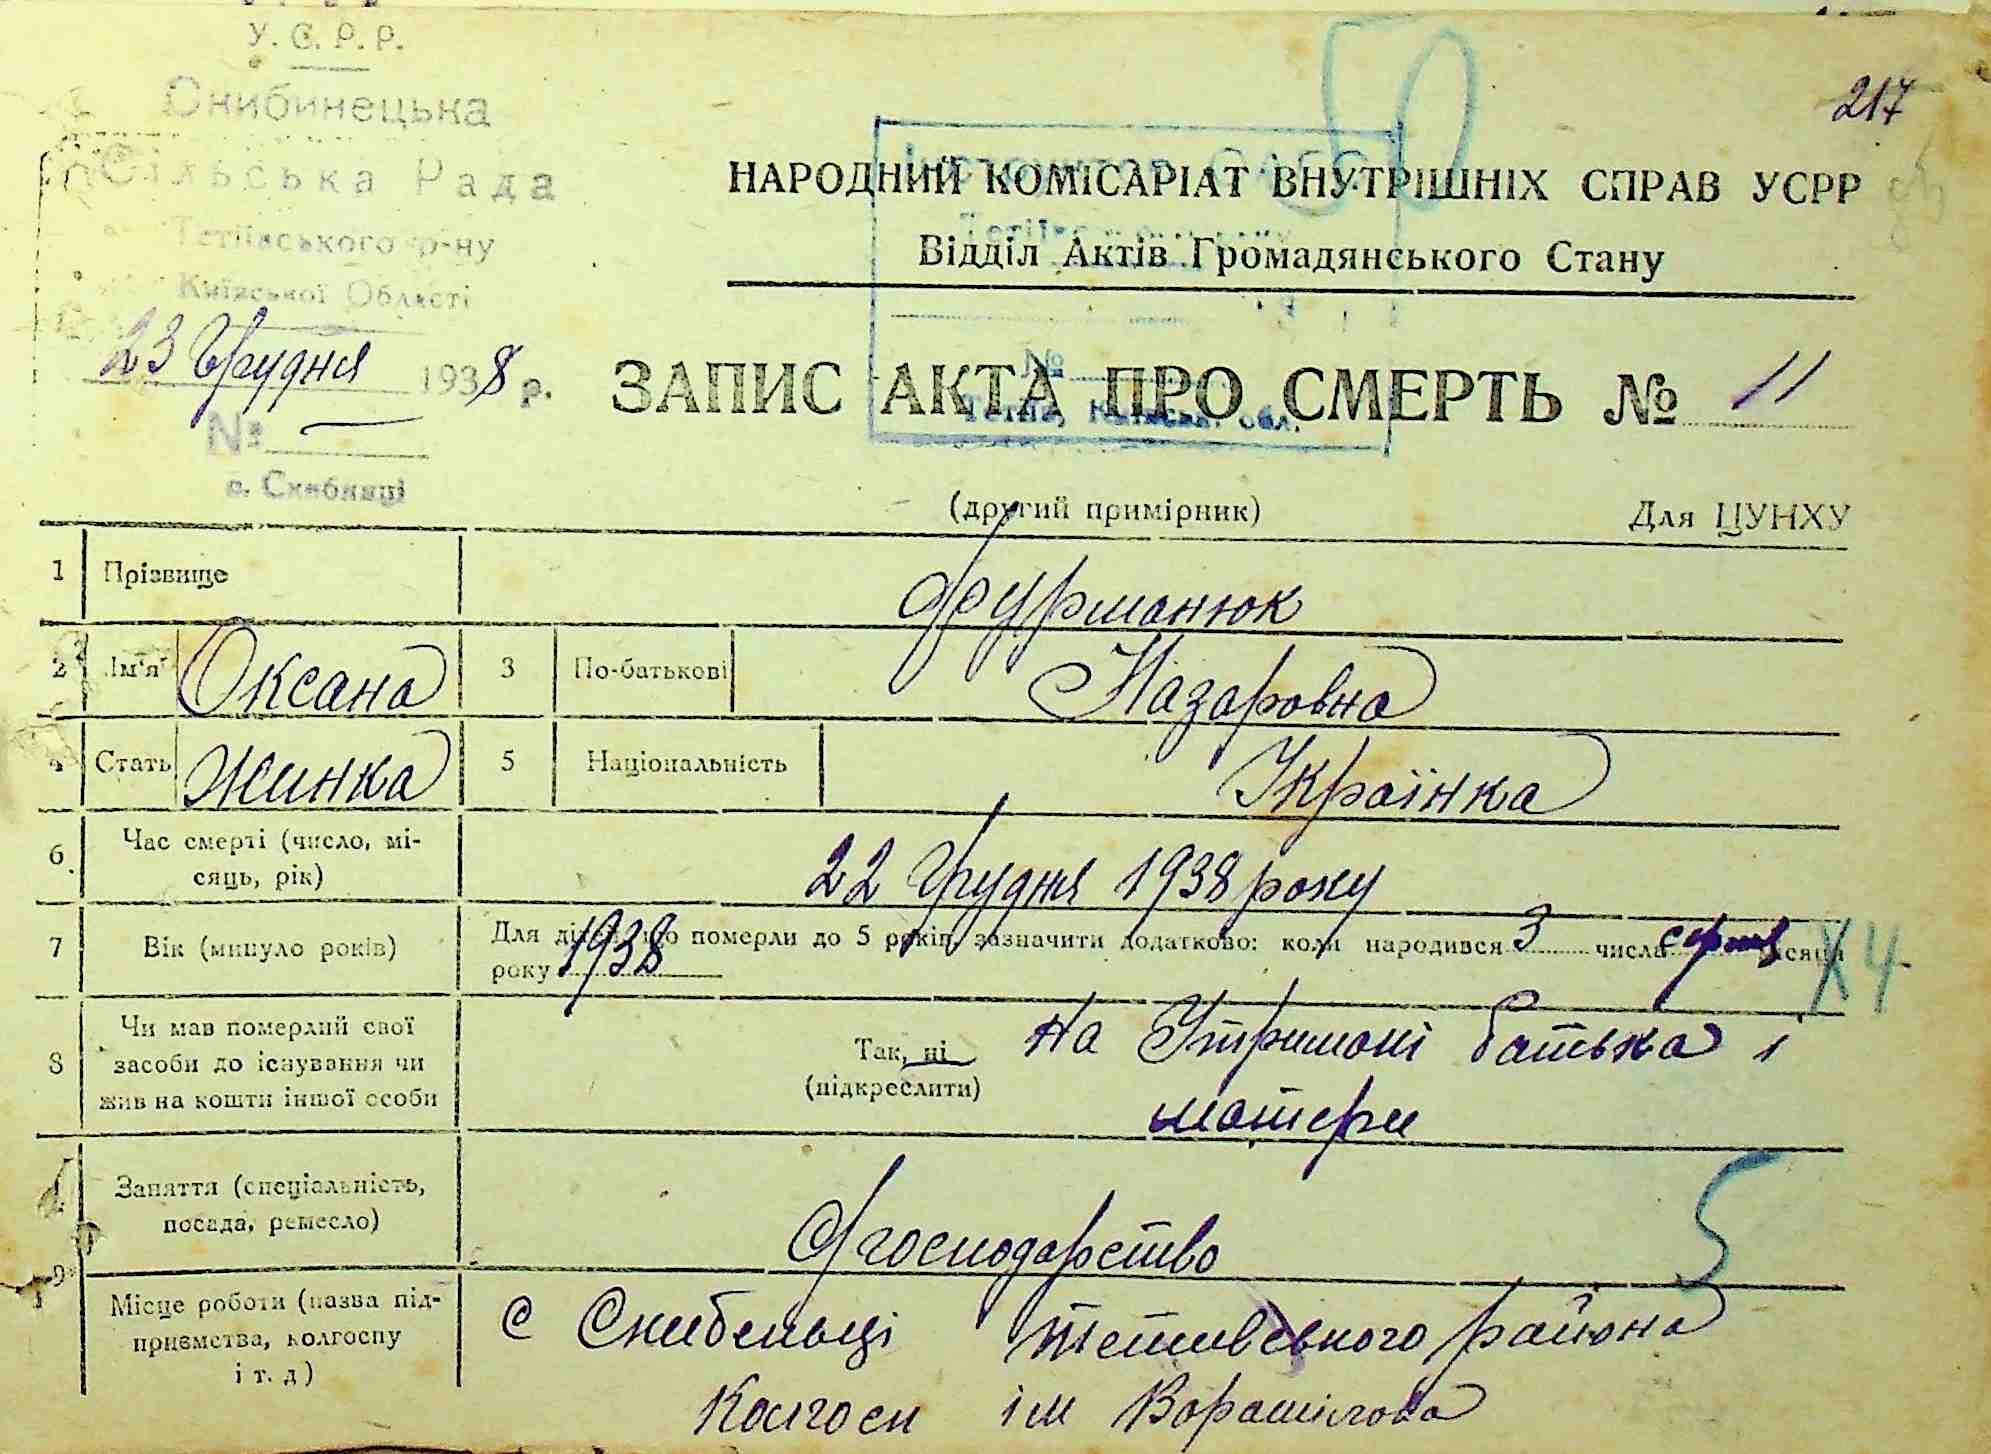 У. С. Р. Р.
Скибинецька
Сільська Рада
Тетіївського р-ну
Київської Області
23 Грудня 1938 р.
№
с. Скибинці
217
50
НАРОДНИЙ КОМІСАРІАТ ВНУТРІШНІХ СПРАВ УСРР
Відділ Актів Громадянського Стану
ЗАПИС АКТА ПРО СМЕРТЬ № 11
№
Тетіїв, Київськ. обл.
(другий примірник) Для ЦУНХУ
1 Прізвище Фурманюк
2 Ім'я Оксана 3 По-батькові Назаровна
4 Стать Жинка 5 Національність Українка
6 Час смерті (число, мі-
сяць, рік) 22 Грудня 1938 року
7 Вік (минуло років) Для дітей, що померли до 5 років, зазначити додатково: коли народився 3 числа серпня місяця
року 1938
X4
8 Чи мав померлий свої
засоби до існування чи
жив на кошти іншої особи
Так, ні
(підкреслити)
на Утримані батька і
матери
Заняття (спеціальність,
посада, ремесло) Фгосподарство
5
9
Місце роботи (назва під-
приємства, колгоспу
і т. д)
с Скибеньці Тетивевького района
Колгосп ім Ворашілова